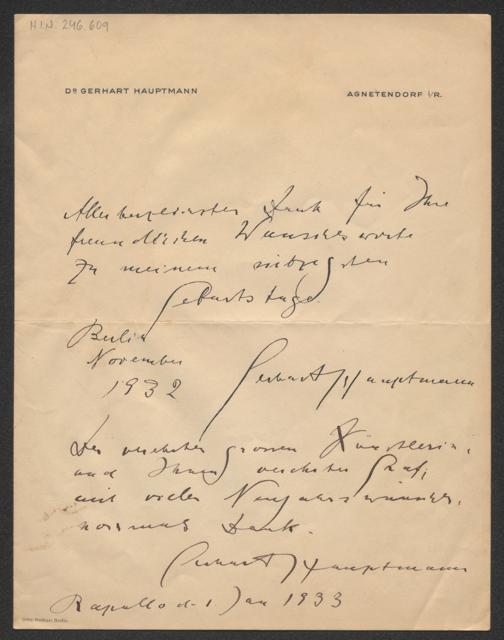 H.I.N. 246.609
DR GERHART HAUPTMANN
AGNETENDORF i/R.
Allerherzlichsten Dank für Ihre
freundlichen Wunschesworte
zu meinem siebzigsten
Geburtstage.
Berlin
November
1932
Gerhart Hauptmann
Der verehrten grossen Künstlerin,
und Ihnen, verehrter Graf,
mit vielen Neujahrswünschen,
nochmals Dank.
Gerhart Hauptmann
Rapallo d. 1. Jan 1933